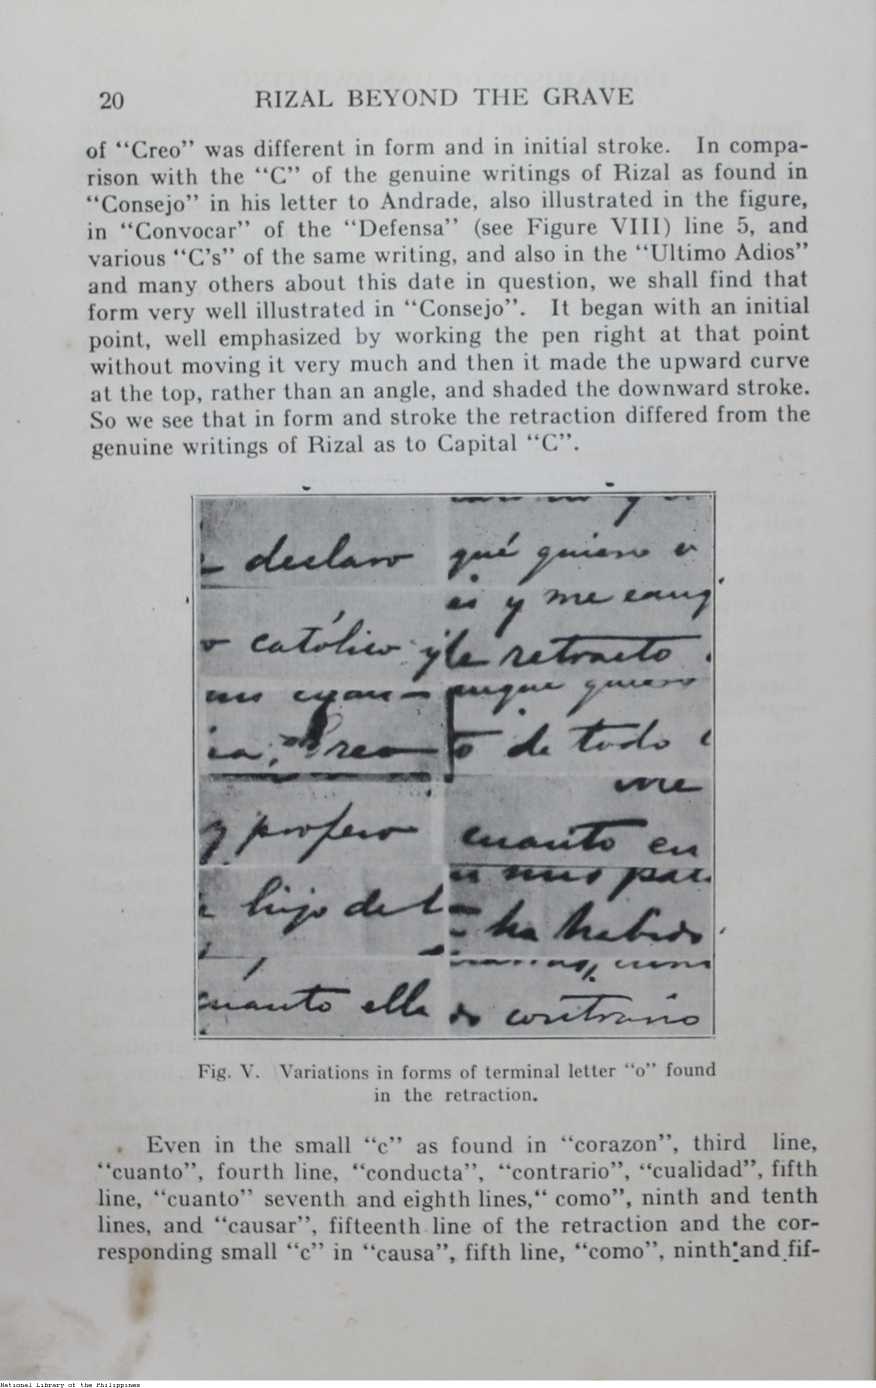 20 RIZAL BEYOND THE GRAVE
of “Creo” was different in form and in initial stroke. In compa-
rison with the “C” of the genuine writings of Rizal as found in
“Consejo” in his letter to Andrade, also illustrated in the figure,
in “Convocar” of the “Defensa” (see Figure VIII) line 5, and
various “C’s” of the same writing, and also in the “Ultimo Adios”
and many others about this date in question, we shall find that
form very well illustrated in “Consejo”. It began with an initial
point, well emphasized by working the pen right at that point
without moving it very much and then it made the upward curve
at the top, rather than an angle, and shaded the downward stroke.
So we see that in form and stroke the retraction differed from the
genuine writings of Rizal as to Capital “C”.
declaro
qué quiero
y me
católico y
retracto
quiero
Creo
de todo
me
y profeso
cuanto en
hijo de
ha habido
cuanto ella
contrario
Fig. V. Variations in forms of terminal letter “o” found
in the retraction.
Even in the small “c” as found in “corazon”, third line,
“cuanto”, fourth line, “conducta”, “contrario”, “cualidad”, fifth
line, “cuanto” seventh and eighth lines,“ como”, ninth and tenth
lines, and “causar”, fifteenth line of the retraction and the cor-
responding small “c” in “causa”, fifth line, “como”, ninth and fif-
National Library of the Philippines